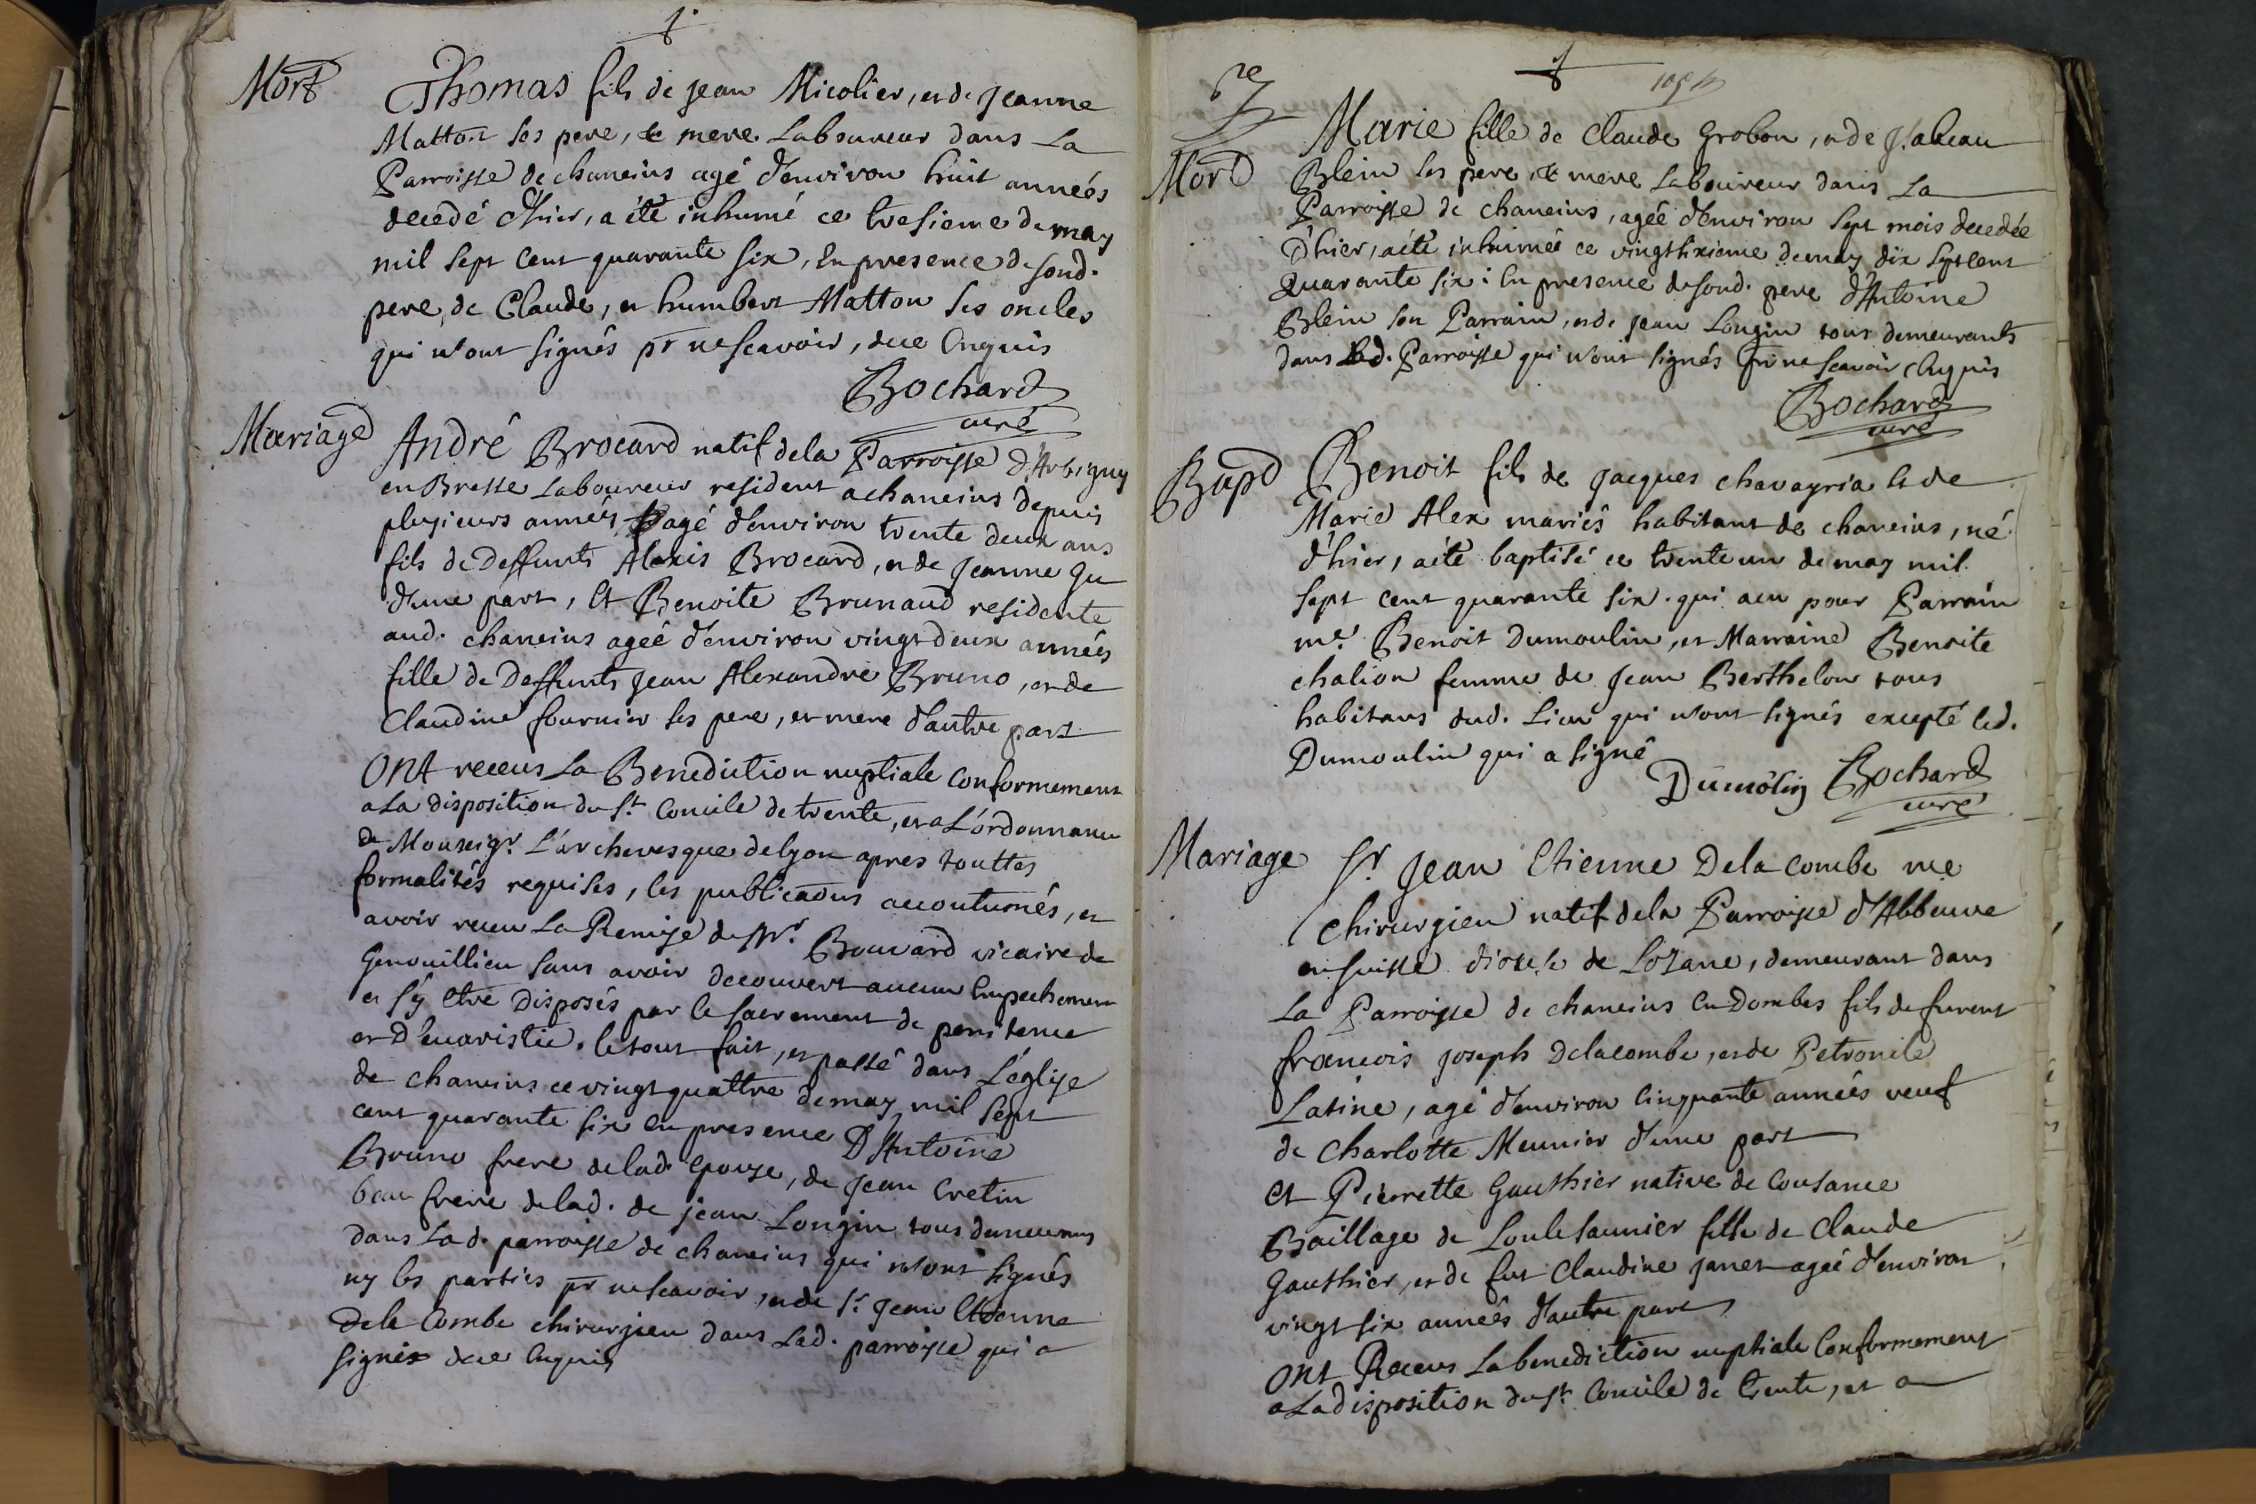 Mort
Thomas fils de jean Micolier, et de Jeanne
Matton ses pere, & mere Laboureur dans La
Parroisse de chaneins agé d'environ huit années
decedé d'hier, a été inhumé ce tresieme de may
mil sept cent quarante six, en presence de sond.
pere, de Claude, et humbert Matton ses oncles
qui n'ont signés pr ne scavoir, de ce enquis
Bochard
curé
Mariage
André Brocard natif de la Parroisse d'Arbigny
en Bresse Laboureur resident a chaneins depuis
plusieurs années agé d'environ trente deux ans
fils de deffunts Alexis Brocard, et de Jeanne Gu
d'une part, Et Benoite Brunaud residente
aud. chaneins agée d'environ vingt deux années
fille de deffunts Jean Alexandre Bruno, et de
Claudine fournier ses pere, et mere d'autre part
ONt receus La Benediction nuptiale conformement
a La disposition du st. Concile de trente, et a L'ordonnance
de Monseigr. L'archevesque de Lyon apres touttes
formalités requises, les publicaõns accoutumés, et
avoir receu La Remise de Mr. Bouvard vicaire de
Genouillieu sans avoir decouvert aucun Empechement
et s'y etre disposés par le sacrement de penitence
et D'eucaristie. le tout fait, et passé dans L'église
de chaneins ce vingt quattre de may mil sept
cent quarante six en presence D'Antoine
Bruno frere de lad. epouse, de Jean Cretin
beau frere de lad. de jean Longin tous demeurans
dans Lad. parroisse de chaneins qui n'ont signés
ny les parties pr ne scavoir, et de sr. Jean Etienne
Dela Combe chirurgien dans Lad. parroisse qui a
signés de ce enquis
Mord
Marie fille de Claude Grobon, et de Isabeau
Blein ses pere, & mere Laboureur dans La
Parroisse de chaneins, agée d'environ sept mois decedée
D'hier, a été inhumée ce vingt sixieme de may dix sept cent
Quarante six: En presence de sond. pere d'Antoine
Blein son Parrain, et de jean Longin tous demeurants
dans Lad. Parroisse qui n'ont signés pr ne scavoir Enquis
Bochard
curé
Bapd
Benoit fils de Jacques chavayria et de
Marie Alex mariés habitant de chaneins, né
d'hier, a été baptisé ce trente un de may mil
sept cent quarante six. qui a eu pour Parrain
me. Benoit Dumoulin, et Marraine Benoite
chalion femme de Jean Berthelon tous
habitans dud. Lieu qui n'ont signés excepté led.
Dumoulin qui a signé
Dumôlin Bochard
curé
Mariage
Sr. Jean Etienne Dela combe me
Chirurgien natif de la Parroisse d'Abbeuve
en suisse diocese de Lozane, demeurant dans
La Parroisse de chaneins en Dombes fils de furent
francois joseph Delacombe, et de Petronile
Latine, agé d'environ Cinquante années veuf
de Charlotte Meunier d'une part
Et Pierrette Gauthier native de Cousance
Baillage de Lonle Saunier fille de Claude
Gauthier, et de fut Claudine janet agée d'environ
vingt six années d'autre part
ONt Receus La benediction nuptiale Conformement
a La disposition du st. Concile de trente, et a